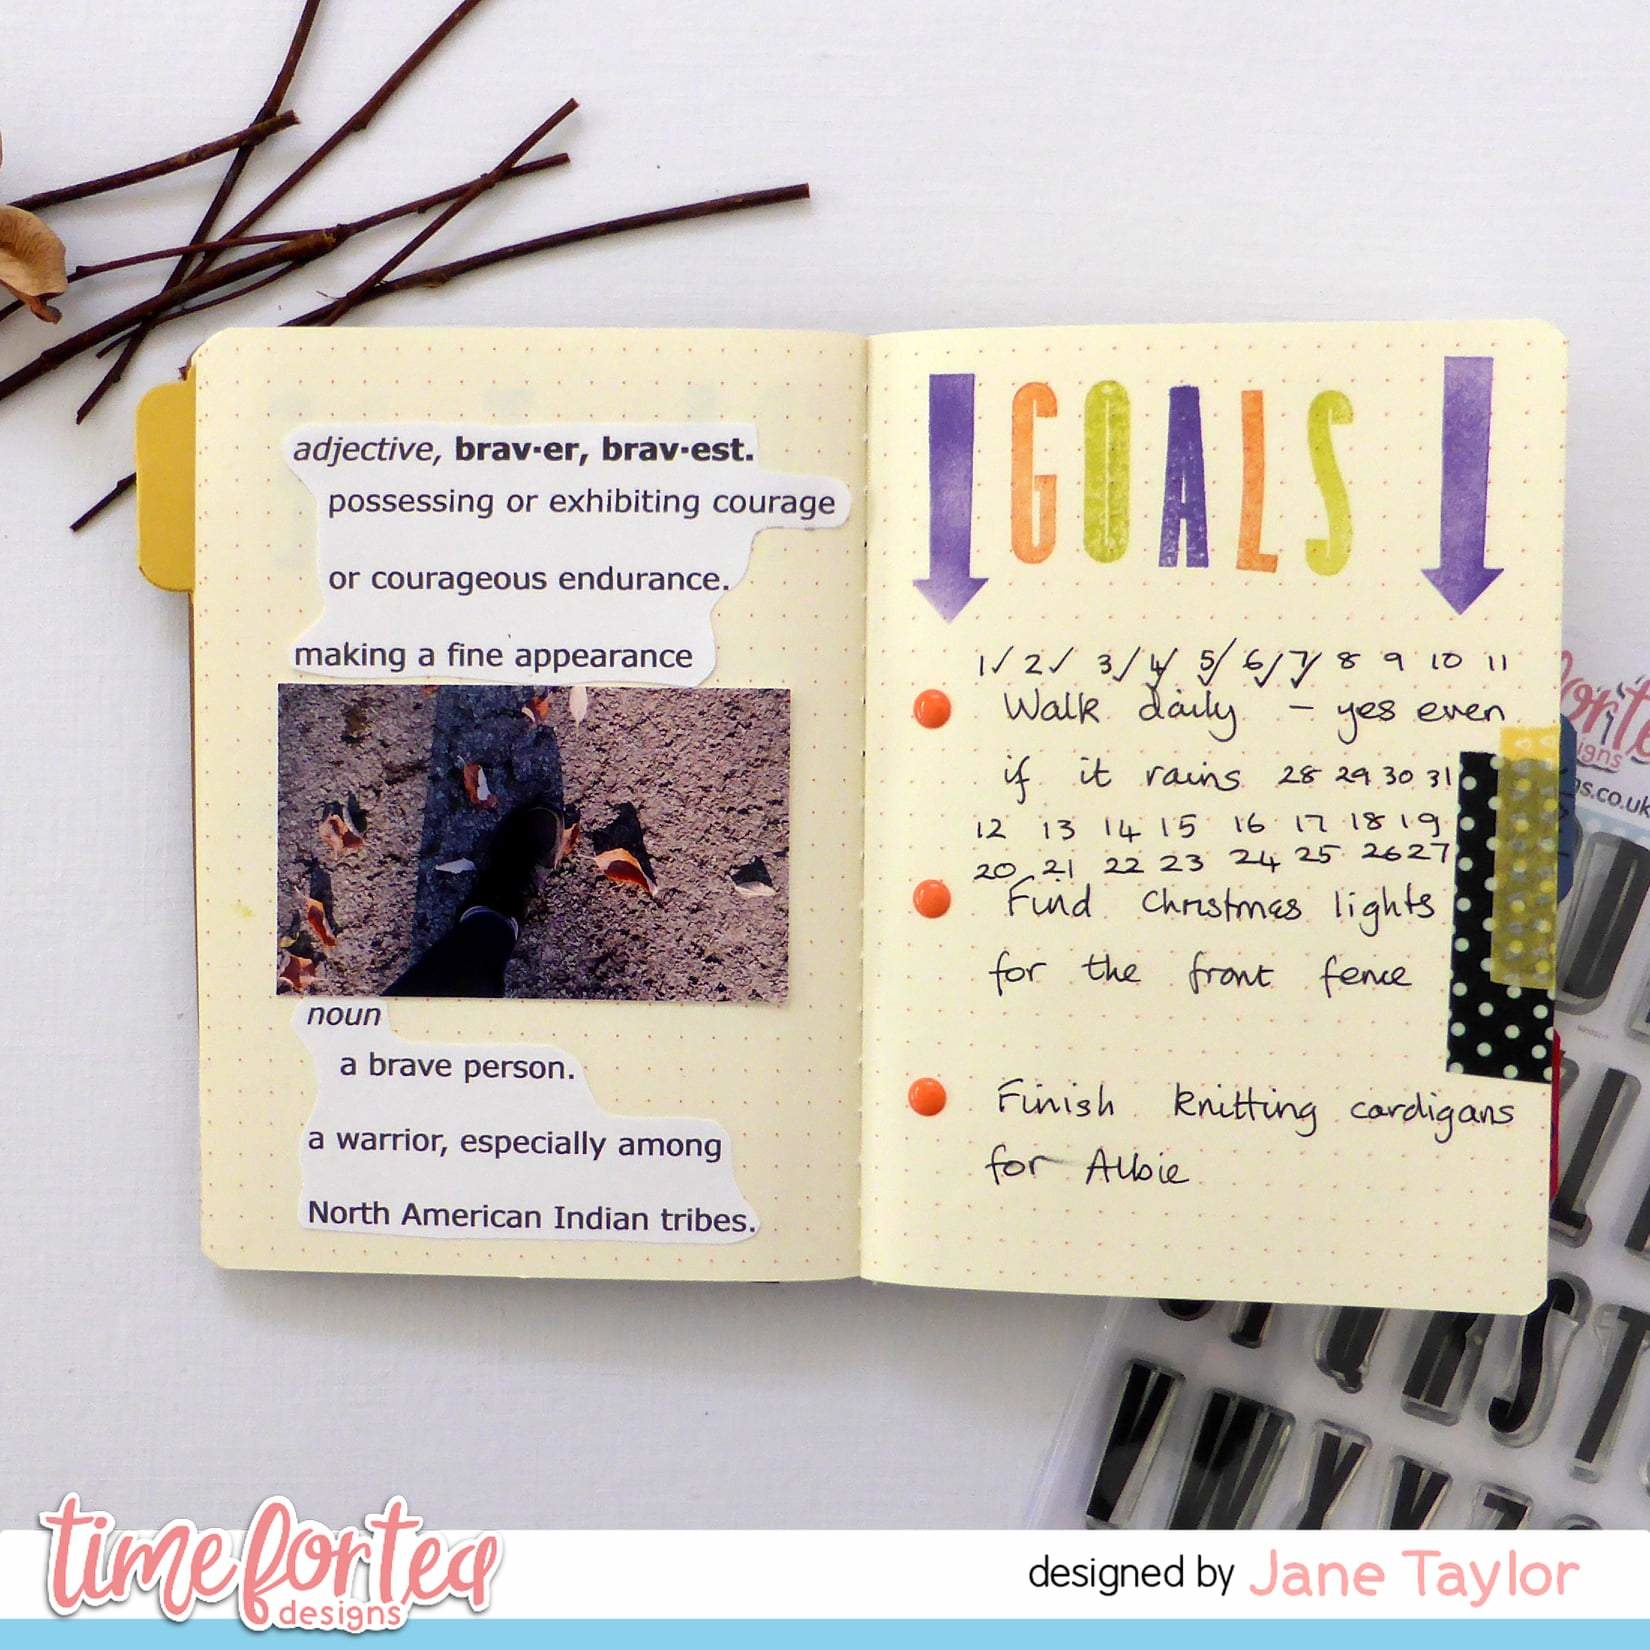 adjective, brav·er, brav·est.
possessing or exhibiting courage
or courageous endurance.
making a fine appearance
noun
a brave person.
a warrior, especially among
North American Indian tribes.
GOALS
1✓ 2✓ 3✓ 4✓ 5✓ 6✓ 7✓ 8 9 10 11
Walk daily – yes even
if it rains 28 29 30 31
12 13 14 15 16 17 18 19
20 21 22 23 24 25 26 27
Find Christmas lights
for the front fence
Finish knitting cardigans
for Albie
W X Y Z
time for tea
designs
designed by Jane Taylor